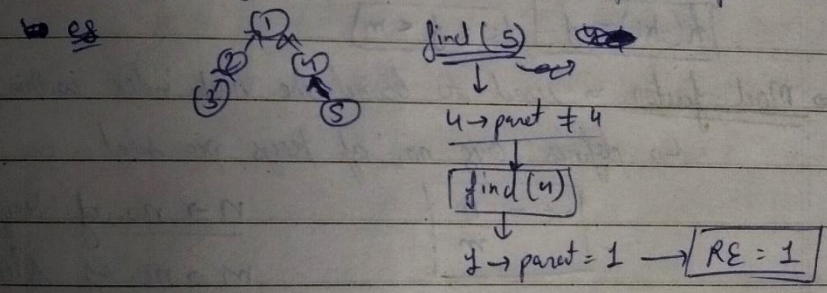 eg
1
2 4
3 5
find(5)
4 → paret ≠ 4
find(4)
1 → paret = 1 → RE = 1